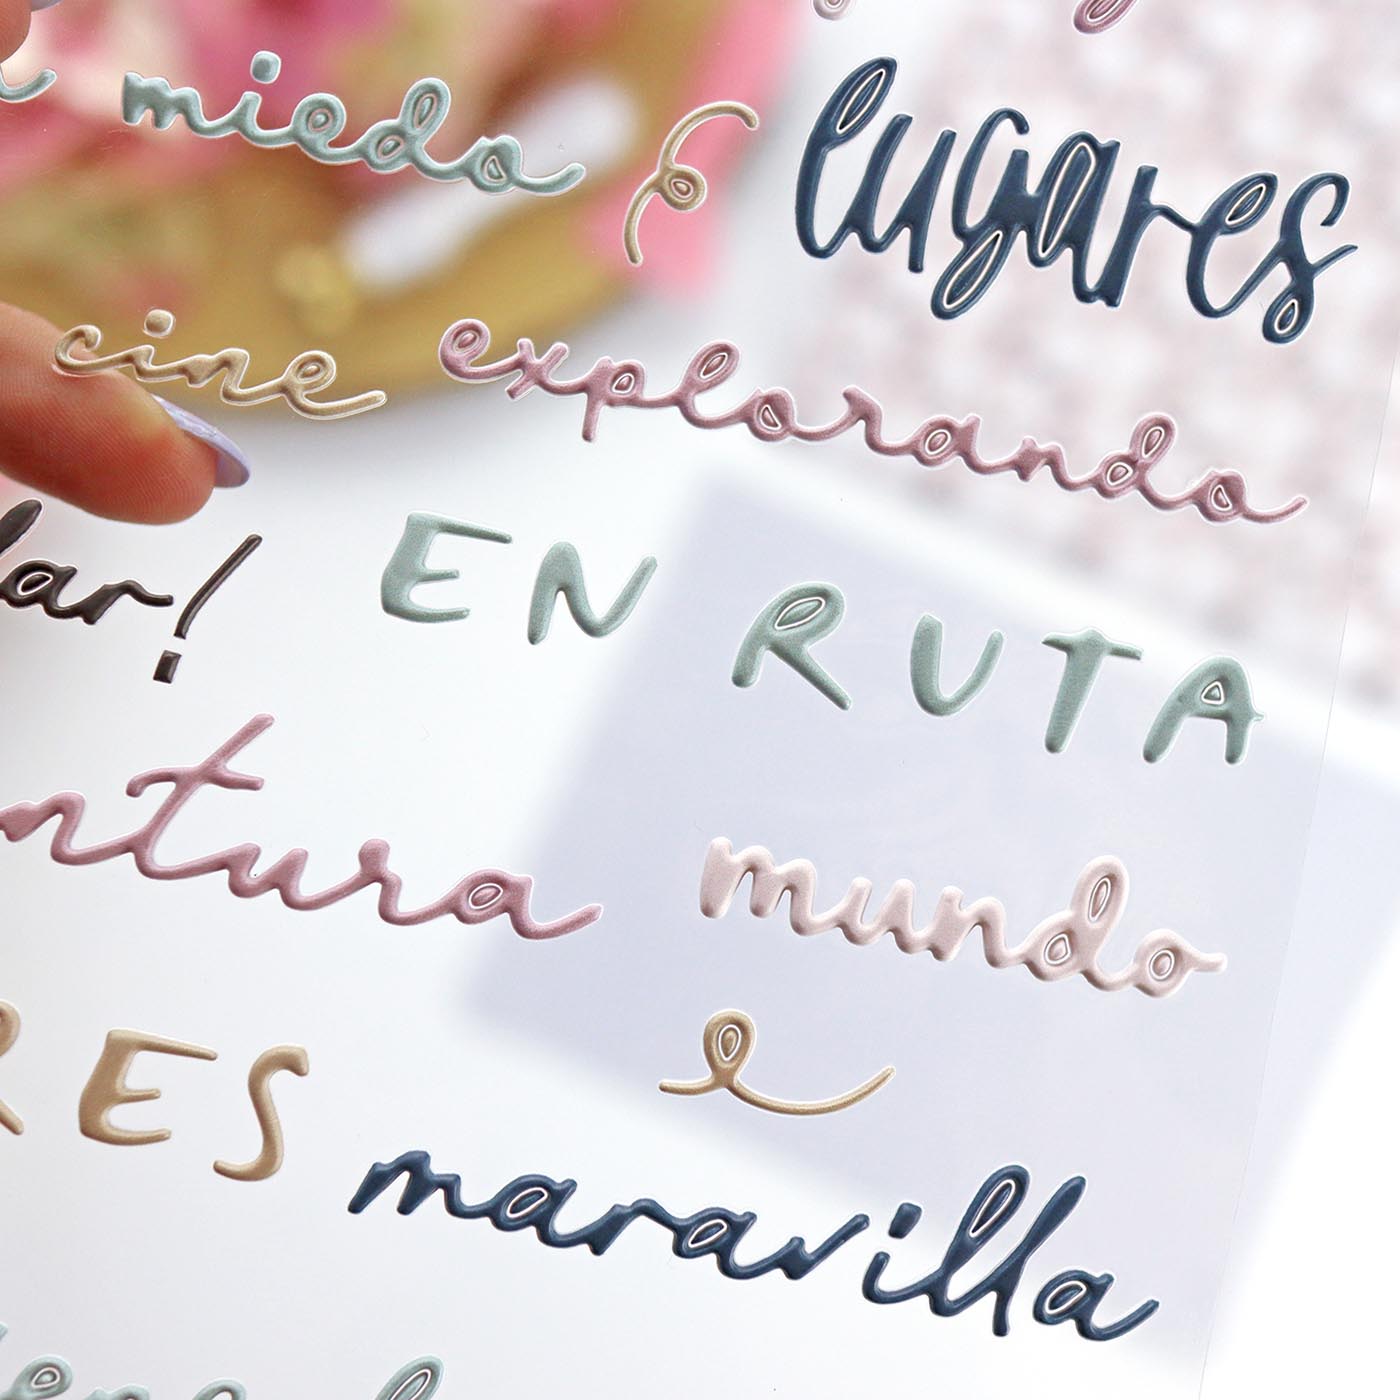 miedo
lugares
cine explorando
lar!
EN RUTA
ntura
mundo
RES
maravilla